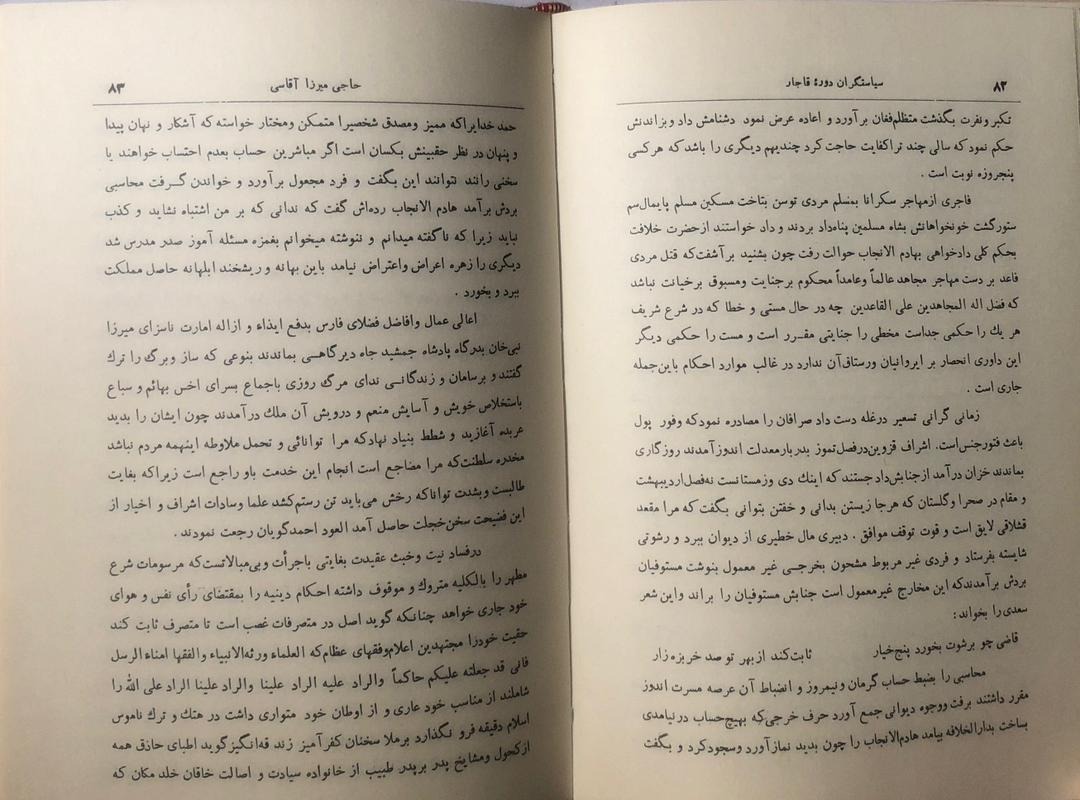 ۸۲
سیاستگران دورهٔ قاجار
تکبر ونفرت بگذشت متظلم‌فغان برآورد و اعاده عرض نمود دشنامش داد وبزاندنش
حکم نمود که سالی چند تراکفایت حاجت کرد چندیهم دیگری را باشد که هر کسی
پنجروزه نوبت است .
فاجری ازمهاجر سکرانا بمسلم مردی توسن بتاخت مسکین مسلم پایمال‌سم
ستورگشت خونخواهانش بشاه مسلمین پناه‌داد بردند و داد خواستند ازحضرت خلافت
بحکم کلی دادخواهی بهادم الانجاب حوالت رفت چون بشنید برآشفت‌که قتل مردی
قاعد بر دست مهاجر مجاهد عالماً وعامداً محکوم برجنایت ومسبوق برخیانت نباشد
که فضل اله المجاهدین علی القاعدین چه در حال مستی و خطا که در شرع شریف
هر یك را حکمی جداست مخطی را جنایتی مقرر است و مست را حکمی دیگر
این داوری انحصار بر ایروانیان ورستاق‌آن ندارد در غالب موارد احکام باین‌جمله
جاری است .
زمانی گرانی تسعیر درغله دست داد صرافان را مصادره نمود که وفور پول
باعث فتورجنس‌است. اشراف قزوین‌درفصل‌تموز بدربارمعدلت اندوزآمدند روزگاری
بماندند خزان درآمد ازجنابش‌دادجستند که اینك دی وزمستانست نه‌فصل‌اردیبهشت
و مقام در صحرا وگلستان که هرجا زیستن بدانی و خفتن بتوانی بگفت که مرا مقعد
قشلاقی لایق است و قوت توقف موافق . دبیری مال خطیری از دیوان ببرد و رشوتی
شایسته بفرستاد و فردی غیر مربوط مشحون بخرجی غیر معمول بنوشت مستوفیان
بردش برآمدندکه این مخارج غیرمعمول است جنابش مستوفیان را براند واین شعر
سعدی را بخواند:
قاضی چو برشوت بخورد پنج‌خیار ثابت‌کند ازبهر تو صد خربزه زار
محاسبی را بضبط حساب گرمان ونیمروز و انضباط آن عرصه مسرت اندوز
مقرر داشتند برفت ووجوه دیوانی جمع آورد حرف خرجی‌که بهیچ‌حساب درنیامدی
بساخت بدارالخلافه بیامد هادم‌الانجاب را چون بدید نمازآورد وسجود‌کرد و بگفت
۸۳
حاجی میرزا آقاسی
حمد خدایراکه ممیز ومصدق شخصیرا متمکن ومختار خواسته که آشکار و نهان پیدا
و پنهان در نظر حقبینش یکسان است اگر مباشرین حساب بعدم احتساب خواهند یا
سخنی رانند نتوانند این بگفت و فرد مجعول برآورد و خواندن گرفت محاسبی
بردش برآمد هادم الانجاب رده‌اش گفت که ندانی که بر من اشتباه نشاید و کذب
نباید زیرا که ناگفته میدانم و ننوشته میخوانم بغمزه مسئله آموز صدر مدرس شد
دیگری را زهره اعراض واعتراض نیامد باین بهانه و ریشخند ابلهانه حاصل مملکت
ببرد و بخورد .
اعالی عمال وافاضل فضلای فارس بدفع ایذاء و ازاله امارت ناسزای میرزا
نبی‌خان بدرگاه پادشاه جمشید جاه دیرگاهی بماندند بنوعی که ساز وبرگ را ترك
گفتند و برسامان و زندگانی ندای مرگ روزی باجماع بسرای اخس بهائم و سباع
باستخلاص خویش و آسایش منعم و درویش آن ملك درآمدند چون ایشان را بدید
عربده آغازید و شطط بنیاد نهادکه مرا توانائی و تحمل ملاوطه اینهمه مردم نباشد
مخدره سلطنت‌که مرا مضاجع است انجام این خدمت باو راجع است زیراکه بغایت
طالبست وبشدت تواناکه رخش می‌باید تن رستم‌کشد علما وسادات اشراف و اخیار از
این فضیحت سخن‌خجلت حاصل آمد العود احمدگویان رجعت نمودند .
درفساد نیت وخبث عقیدت بغایتی باجرأت وبی‌مبالاتست‌که مرسومات شرع
مطهر را بالکلیه متروك و موقوف داشته احکام دینیه را بمقتضای رأی نفس و هوای
خود جاری خواهد چنانکه گوید اصل در متصرفات غصب است تا متصرف ثابت کند
حقیت خودرا مجتهدین اعلام‌وفقهای عظام‌که العلماء ورثه‌الانبیاء والفقها امناء الرسل
فانی قد جعلته علیکم حاکماً والراد علیه الراد علینا والراد علینا الراد علی الله را
شاملند از مناسب خود عاری و از اوطان خود متواری داشت در هتك و ترك ناموس
اسلام دقیقه فرو نگذارد برملا سخنان کفرآمیز زند قه‌انگیزگوید اطبای حاذق همه
ازکحول ومشایخ پدر برپدر طبیب از خانواده سیادت و اصالت خاقان خلد مکان که